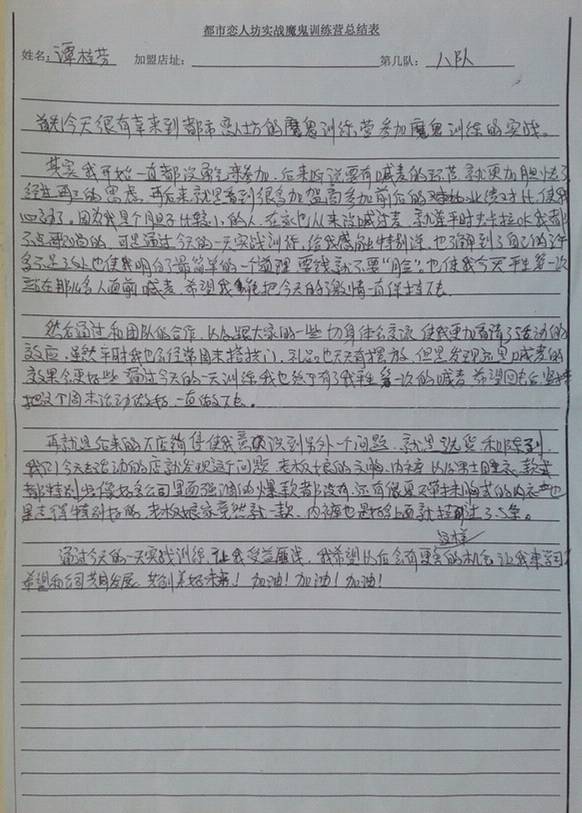 都市恋人坊实战魔鬼训练营总结表
姓名：谭桂芳 加盟店址： 第几队：八队
首先今天很有幸来到都市恋人坊的魔鬼训练营参加魔鬼训练的实战。
其实我开始一直都没勇气来参加，后来听说要有喊麦的环节，就更加胆怯了
经过再三的思虑，再后来就是看到很多加盟商参加前后的业绩对比，使我
心动了，因为我是个胆子比较小的人，在家也从来没喊过麦，就连平时去卡拉OK我都
不点歌唱的，可是通过今天的一天实战训练，给我感触特别深，也了解到了自己的许
多不足之处，也使我明白了最简单的一个道理，要钱就不要“脸”，也使我今天平生第一次
站在那么多人面前喊麦，希望我能把今天的激情一直保持下去。
然后通过和团队的合作，以及跟大家的一些切身体会交流，使我更加看清了活动的
效应，虽然平时我也会经常周末搭拱门，礼品也天天有摆放，但是发现元旦喊麦的
效果会更好些，通过今天的一天训练，我也终于有了我平生第一次的喊麦，希望回去后坚持
把这个周末活动做好，一直做下去。
再就是后来的下店销售使我意识到另外一个问题，就是选货和陈列，
我们今天去活动的店就发现这个问题，老板娘的文胸、内裤以及男士睡衣，款式
都特别少，像好多公司里面强调的爆款都没有，还有很更不单来陈式的内衣也
是走得特别好的，老板娘家竟然就一款，内裤也是好多上面就超过了3.5条。
这样
通过今天的一天实战训练，让我受益匪浅，我希望以后会有更多的机会让我来学习
希望和公司共同发展，共创美好未来！加油！加油！加油！